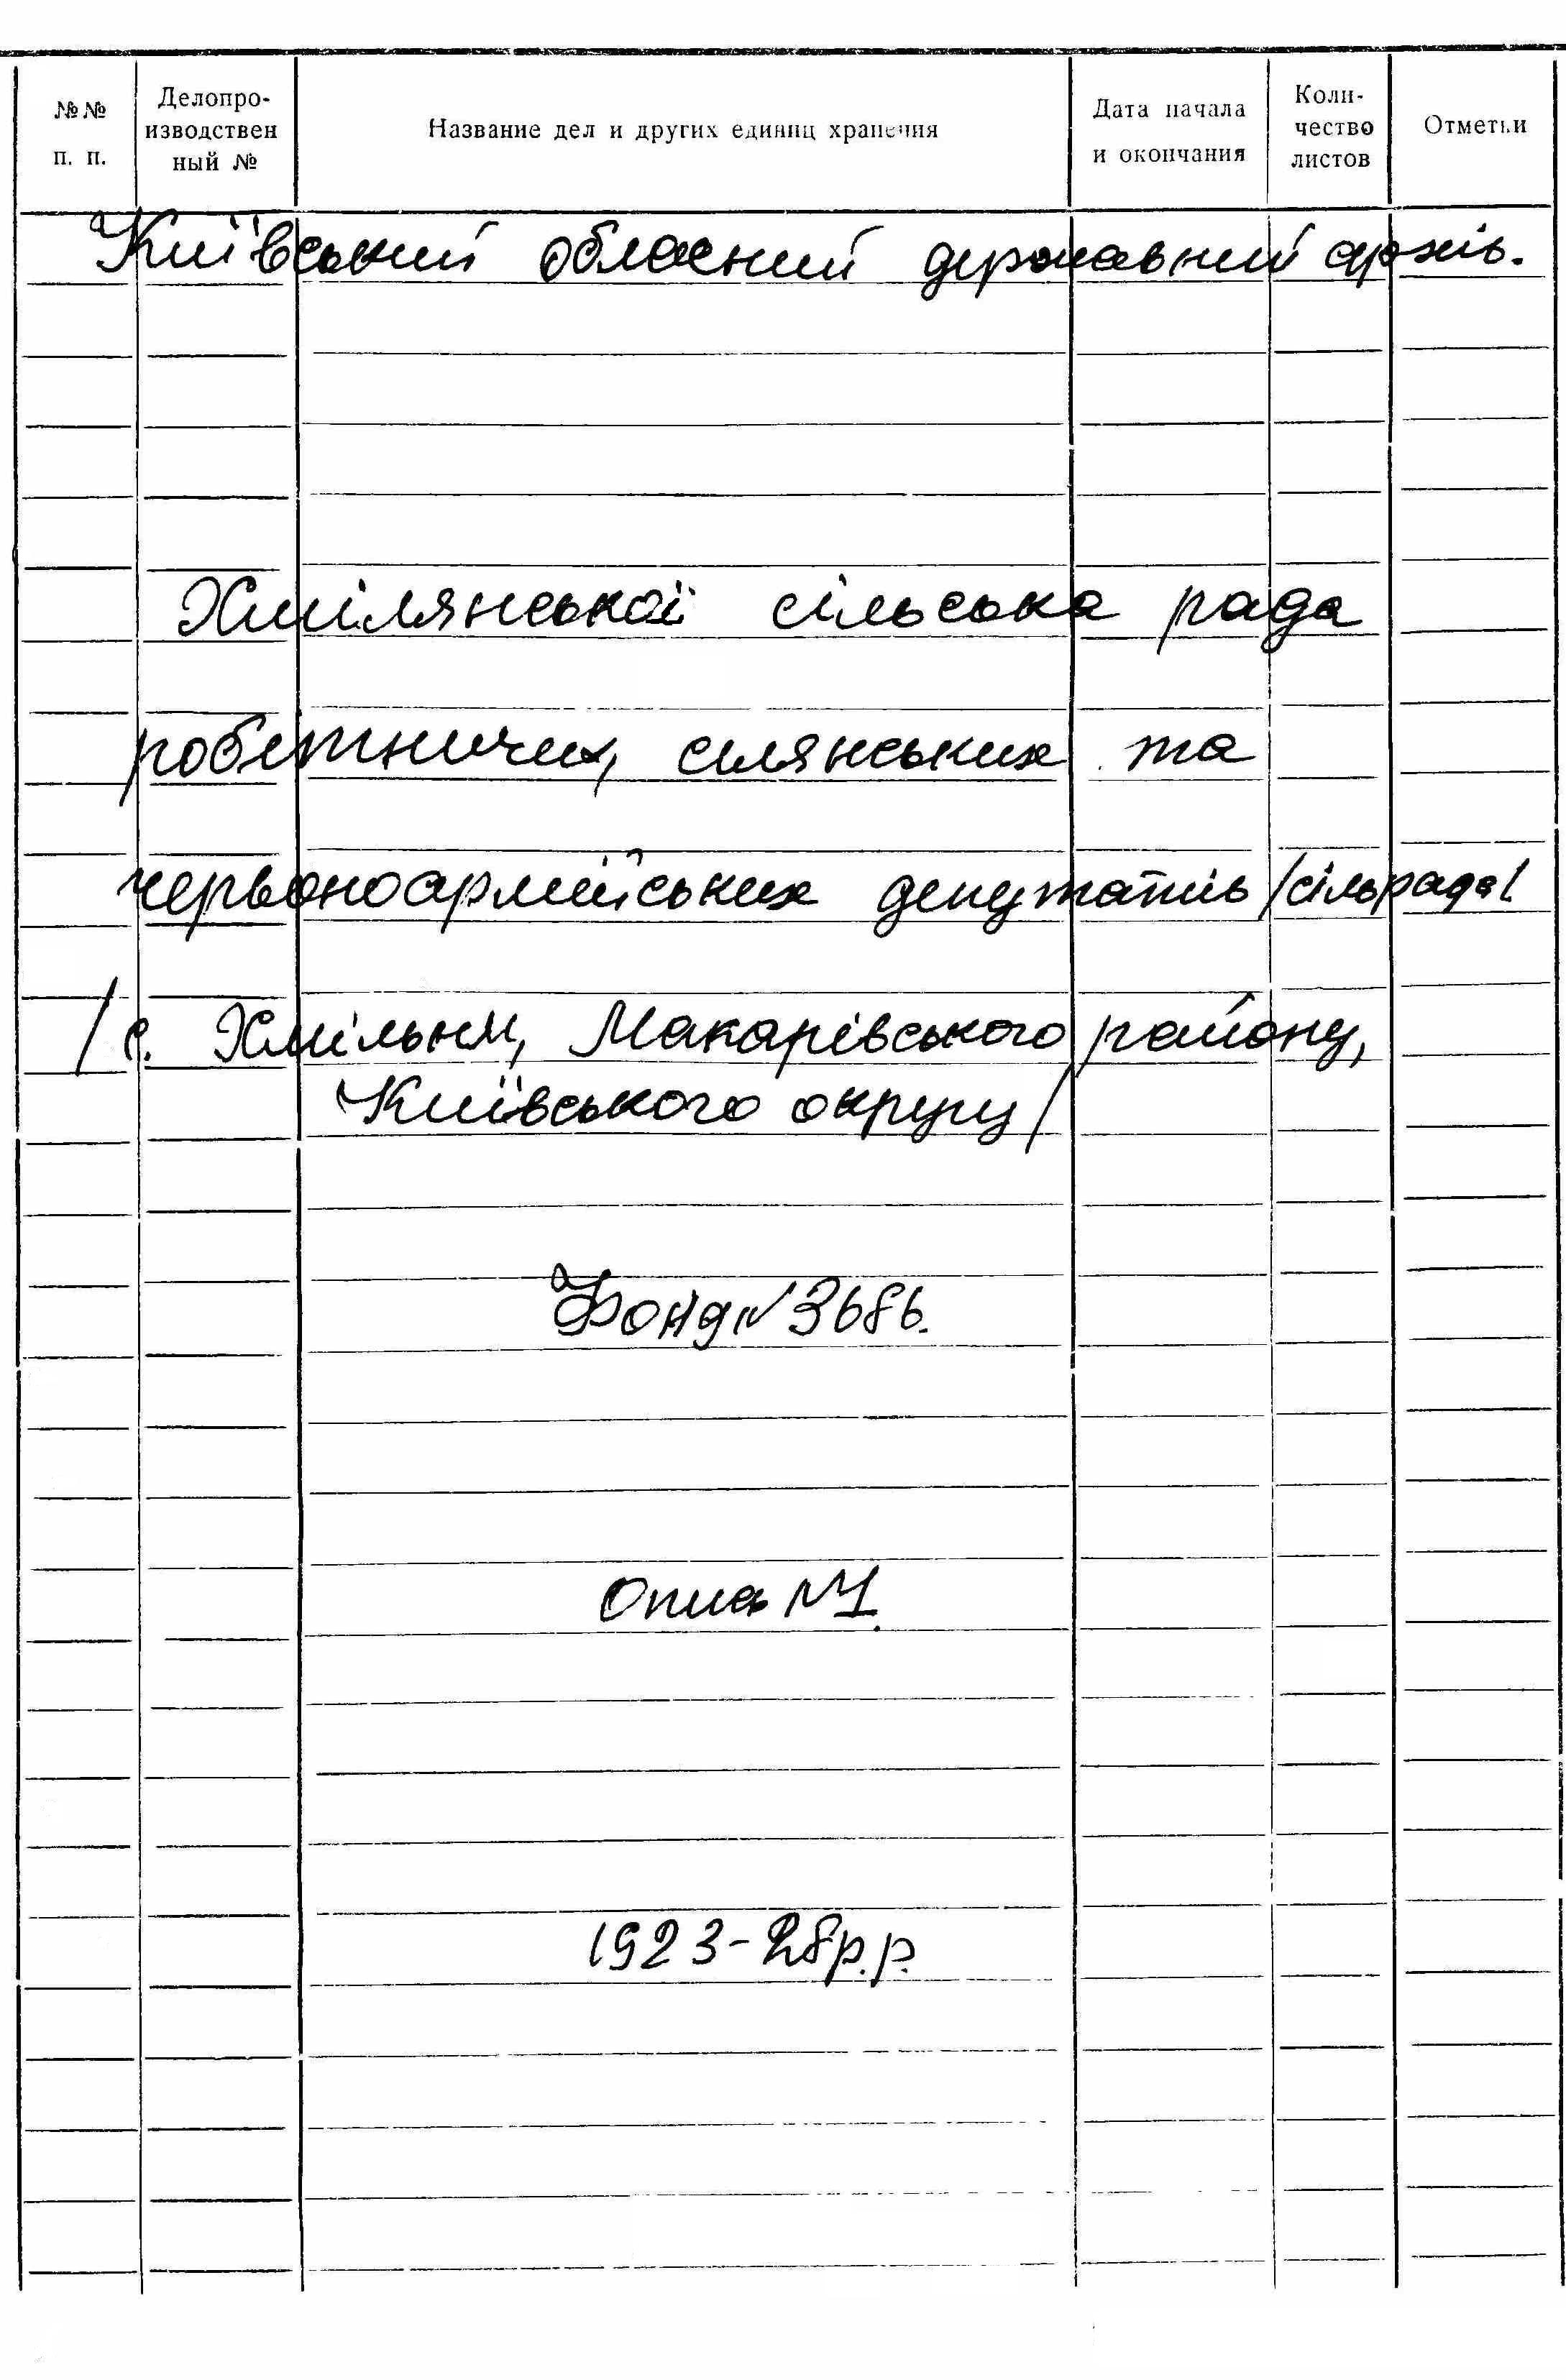 №№ п. п.
Делопро-изводствен ный №
Название дел и других единиц хранения
Дата начала и окончания
Коли-чество листов
Отметки
Київський обласний державний архів.
Хмілянської сільська рада
робітничих, селянських та
червоноармійських депутатів /сільрада/
/с. Хмільня, Макарівського району,
Київського округу/
Фонд № 3686.
Опись №1.
1923-28р.р.